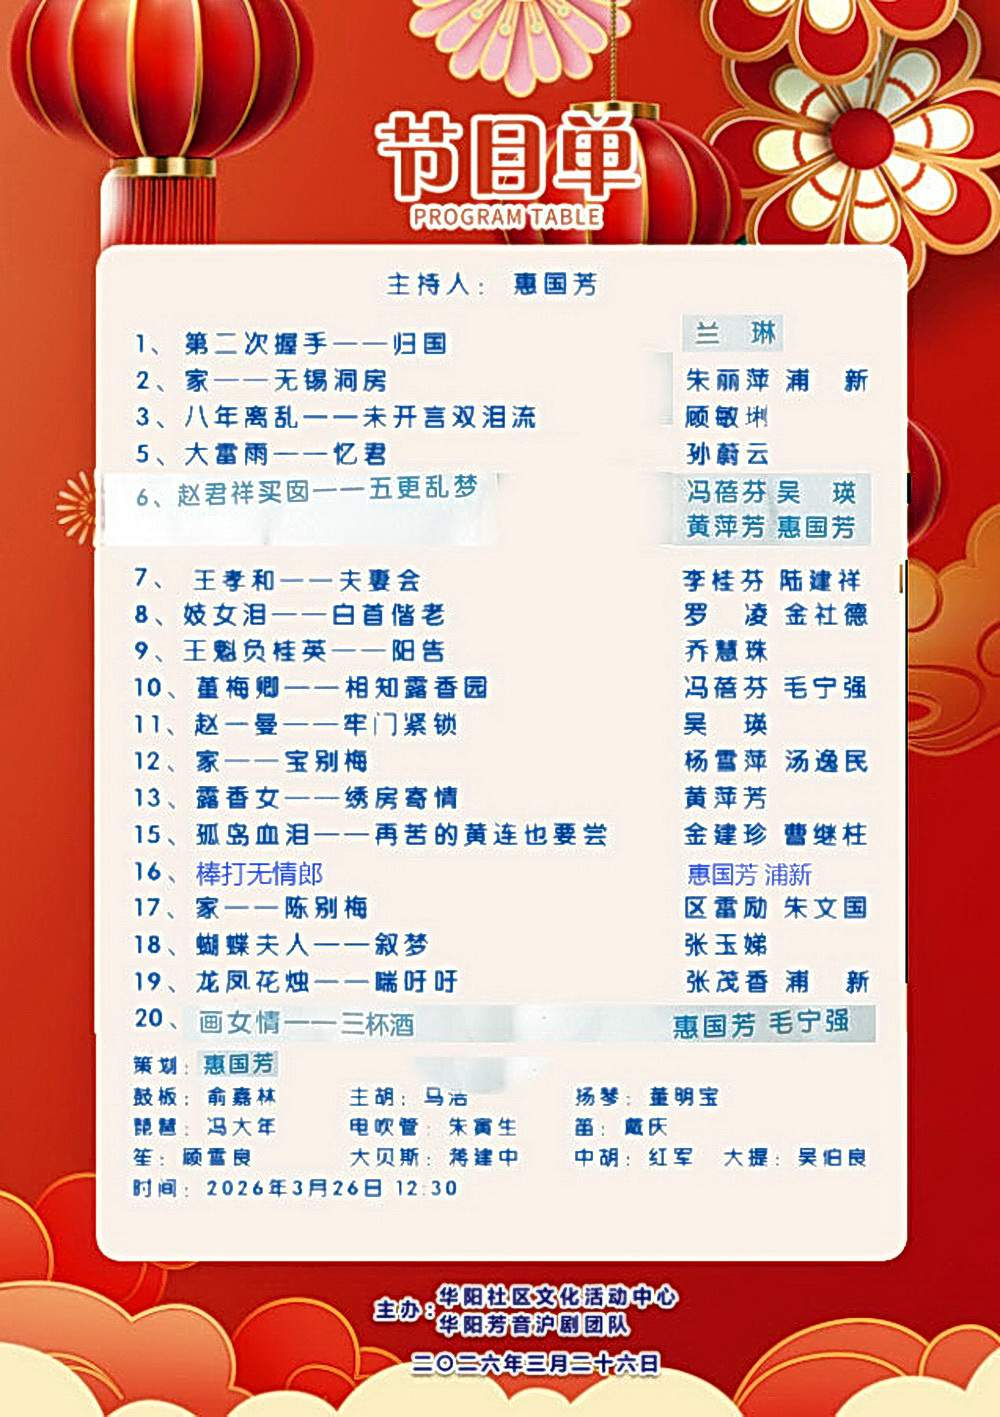 节目单
PROGRAM TABLE
主持人： 惠国芳
1、 第二次握手——归国 兰 琳
2、 家——无锡洞房 朱丽萍 浦 新
3、 八年离乱——未开言双泪流 顾敏琍
5、 大雷雨——忆君 孙蔚云
6、赵君祥买囡——五更乱梦 冯蓓芬 吴 瑛
黄萍芳 惠国芳
7、 王孝和——夫妻会 李桂芬 陆建祥
8、 妓女泪——白首偕老 罗 凌 金社德
9、 王魁负桂英——阳告 乔慧珠
10、 董梅卿——相知露香园 冯蓓芬 毛宁强
11、 赵一曼——牢门紧锁 吴 瑛
12、 家——宝别梅 杨雪萍 汤逸民
13、 露香女——绣房寄情 黄萍芳
15、 孤岛血泪——再苦的黄连也要尝 金建珍 曹继柱
16、 棒打无情郎 惠国芳 浦新
17、 家——陈别梅 区雷励 朱文国
18、 蝴蝶夫人——叙梦 张玉娣
19、 龙凤花烛——喘吁吁 张茂香 浦 新
20、 画女情——三杯酒 惠国芳 毛宁强
策划： 惠国芳
鼓板： 俞嘉林 主胡： 马洁 扬琴： 董明宝
琵琶： 冯大年 电吹管： 朱寅生 笛： 戴庆
笙： 顾雪良 大贝斯： 蒋建中 中胡： 红军 大提： 吴伯良
时间： 2026年3月26日 12:30
主办：华阳社区文化活动中心
华阳芳音沪剧团队
二〇二六年三月二十六日